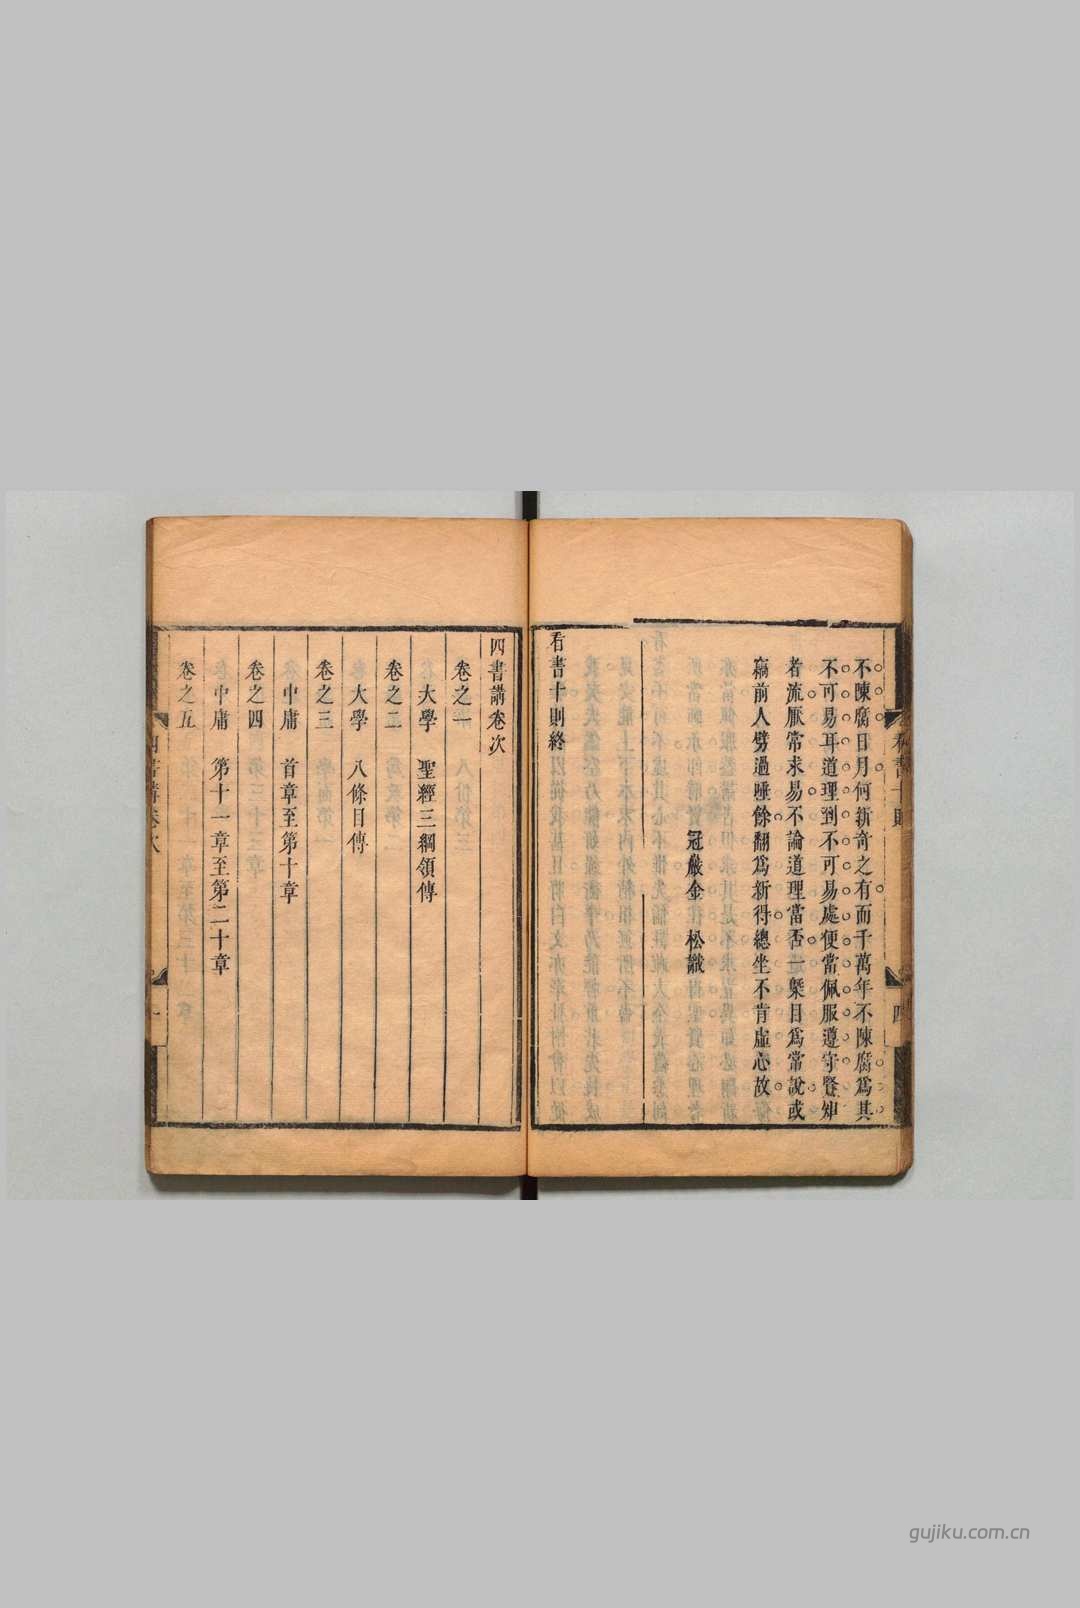 不陳腐日月何新奇之有而千萬年不陳腐爲其
不可易耳道理到不可易處便當佩服遵守豎
者流厭常求易不論道理當否一槩目爲常說或
竊前人劈過唾餘翻爲新得總坐不肯虛心故
冠嚴金 松識
看書十則終
四書講卷次
卷之一
大學 聖經三綱領傳
卷之二
大學 八條目傳
卷之三
中庸 首章至第十章
卷之四
中庸 第十一章至第二十章
卷之五
gujiku.com.cn